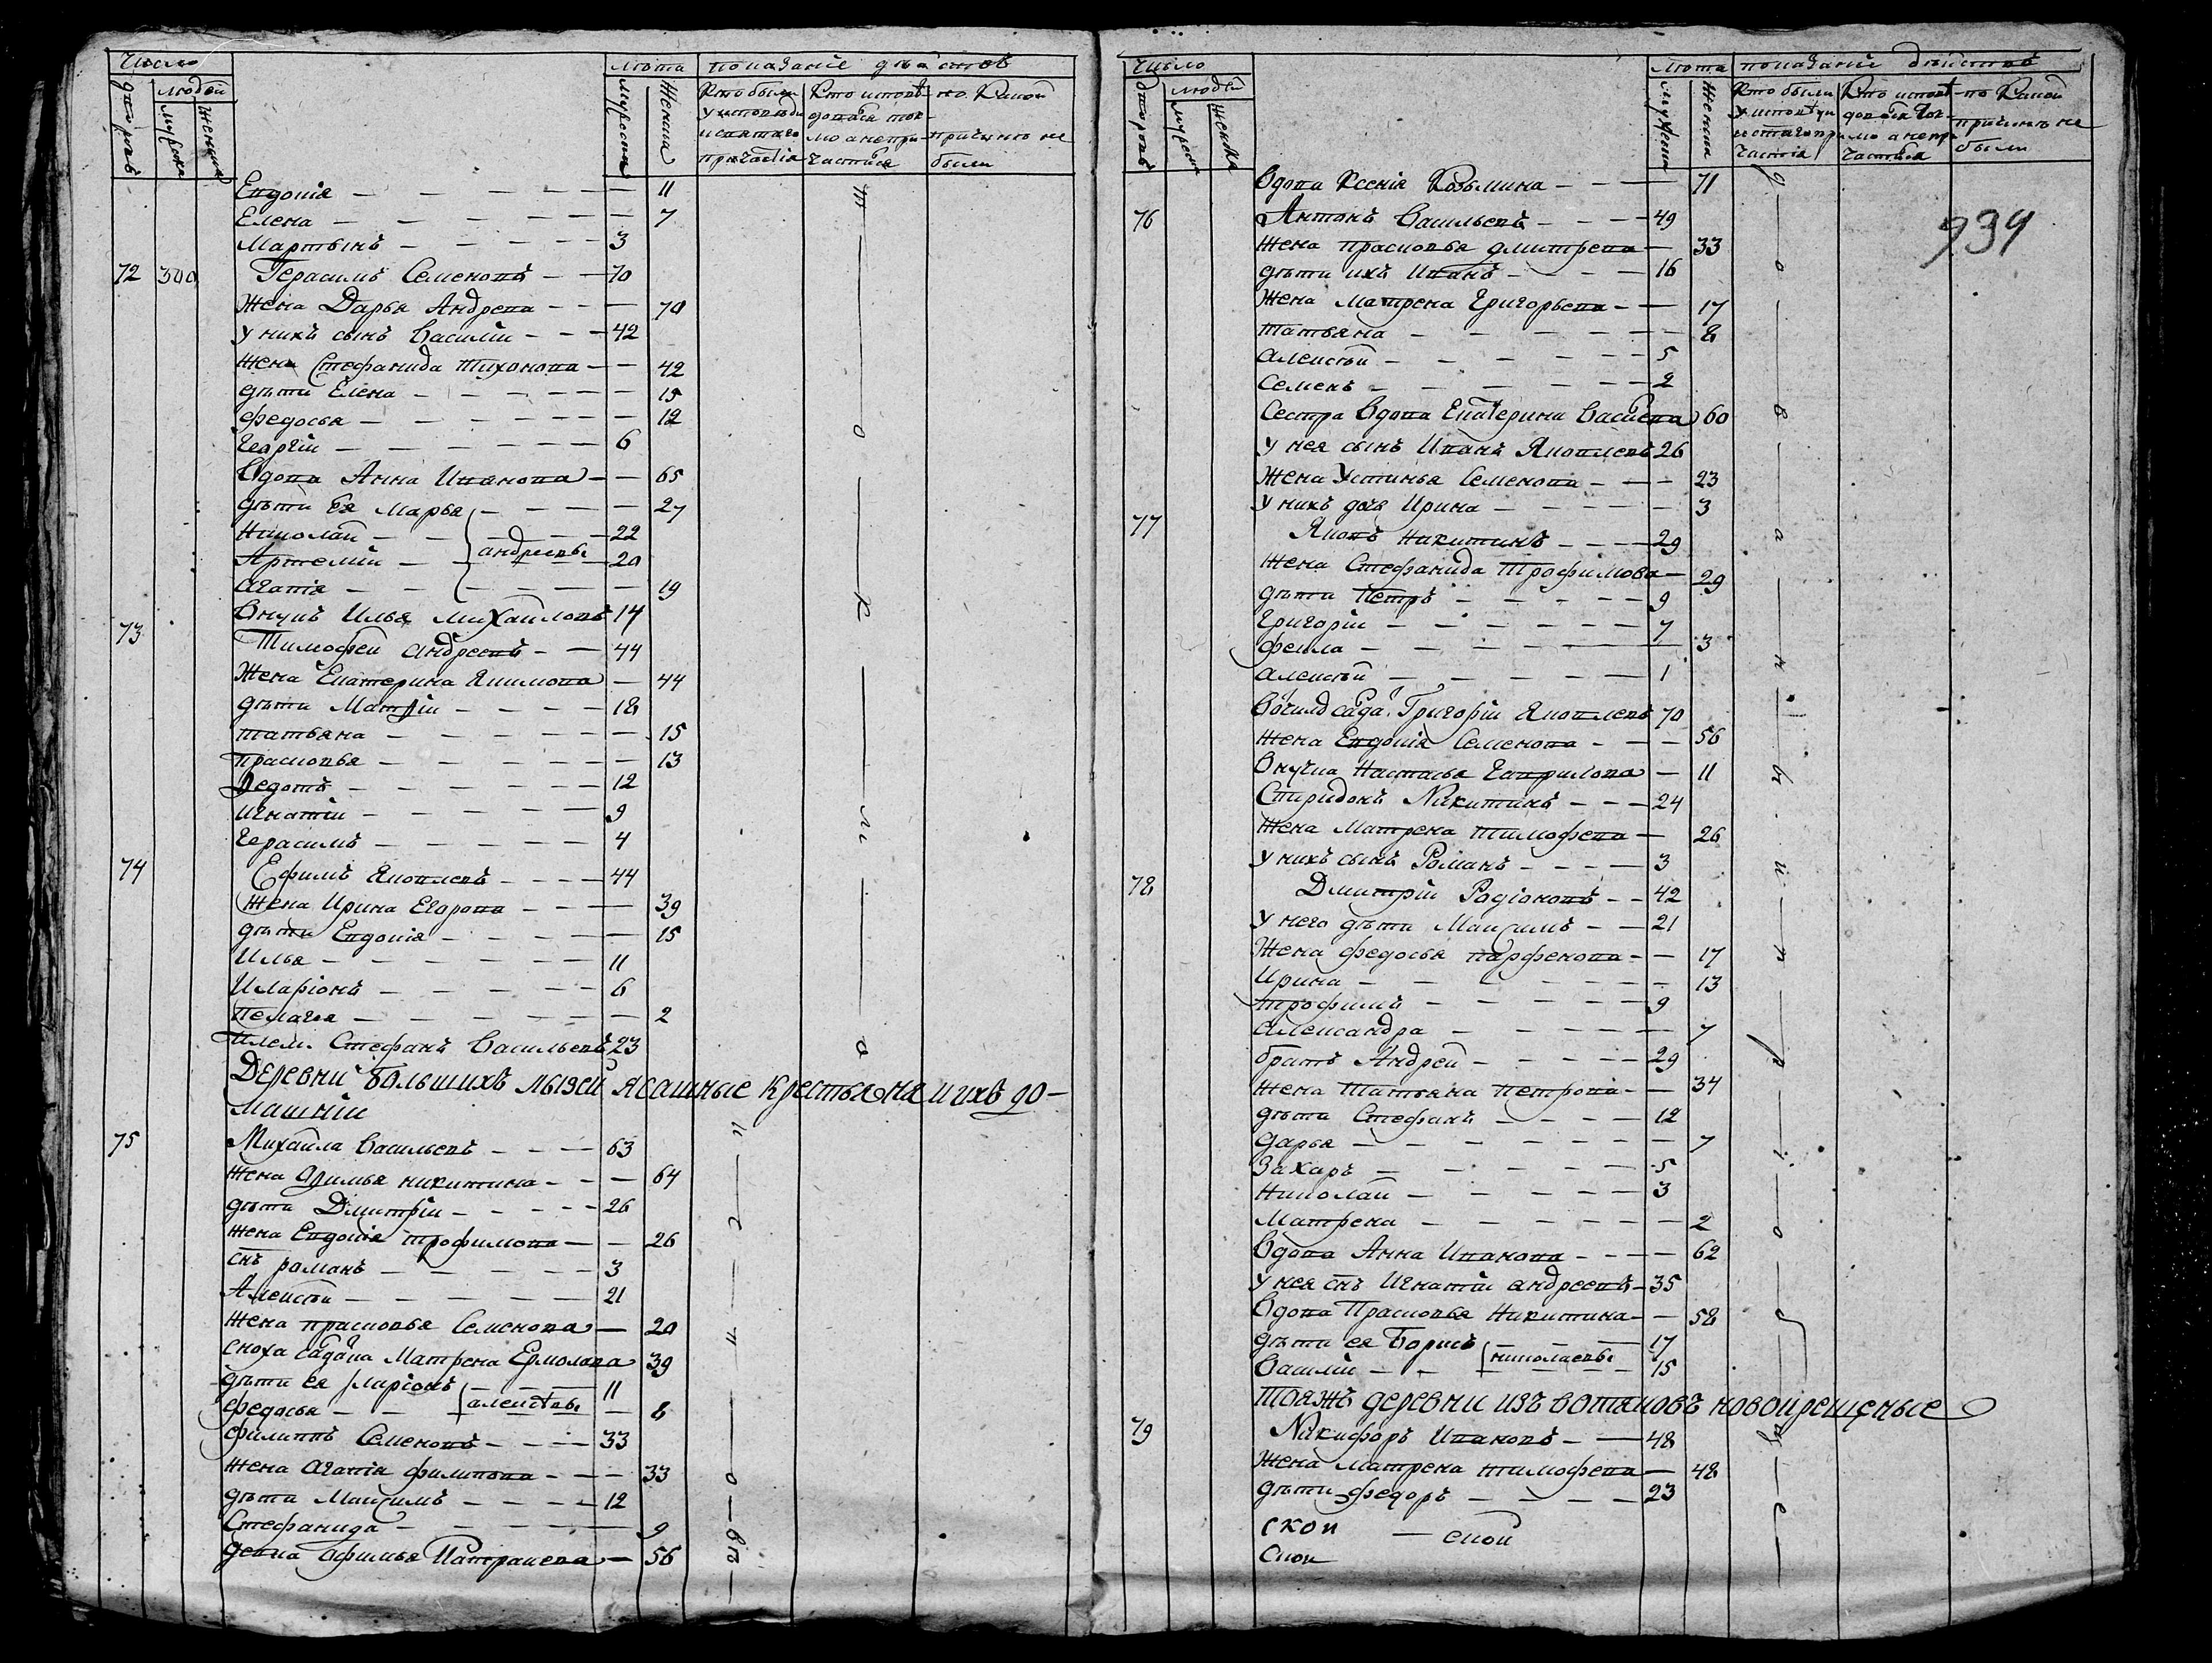 Число
людей
дворовъ
мужска
женска
лѣта
мужеска
женска
показаніе дѣйствъ
Кто были у исповѣди и святаго причастія
Кто исповѣдовался токмо а не причастился
по какой причинѣ не были
Евдокія 11
Елена 7
Мартынъ 3
72 300 Герасимъ Семеновъ 70
Жена Дарья Андрева 70
у нихъ сынъ Василій 42
Жена Стефанида Тихонова 42
дѣти Елена 15
Федосья 12
Георгій 6
Вдова Анна Иванова 65
дѣти ея Марья 27
Николай 22
андреевы
Артемій 20
Агапія 19
Внукъ Илья Михайловъ 14
73 Тимофей Андреевъ 44
Жена Екатерина Якимова 44
дѣти Матфій 18
Татьяна 15
Прасковья 13
Федотъ 12
Игнатій 9
Герасимъ 4
74 Ефимъ Яковлевъ 44
Жена Ирина Егорова 39
дѣти Евдокія 15
Илья 11
Иларіонъ 6
Пелагея 2
Плем. Стефанъ Васильевъ 23
Деревни Большихъ лызей ясашные крестьяна и ихъ до-
машніи
75 Михаила Васильевъ 63
Жена Афимья Никитина 64
дѣти Дмитрій 26
Жена Евдокія Трофимова 26
снъ Романъ 3
Алексѣй 21
Жена Прасковья Семенова 20
Сноха Матрена Ермолава 39
дѣти ея Ларіонъ 11
алексѣевы
Федосья 8
Филиппъ Семеновъ 33
Жена Агапія Филипова 33
дѣти Максимъ 12
Стефанида 9
девка Офимья 56
т о к м о
и с п о вѣ
Число
людей
дворовъ
мужска
женска
лѣта
мужеска
женска
показаніе дѣйствъ
Кто были у исповѣди и стаго причастія
Кто исповѣдовался токмо а не причастился
по какой причинѣ не были
939
Вдова Ксенія Козьмина 71
76 Антонъ Васильевъ 49
Жена Прасковья Дмитрева 33
дѣти ихъ Иванъ 16
Жена Матрена Григорьева 17
Татьяна 8
Алексѣй 5
Семенъ 2
Сестра Вдова Екатерина Василева 60
у нея сынъ Иванъ Яковлевъ 26
Жена Устинья Семенова 23
у нихъ дочь Ирина 3
77 Яковъ Никитинъ 29
Жена Стефанида Трофимова 29
дѣти Петръ 9
Григорій 7
Фекла 3
Алексѣй 1
Григорій Яковлевъ 70
Жена Евдокія Семенова 56
Внучка Настасья Гаврилова 11
Спиридонъ Никитинъ 24
Жена Матрена Тимофева 26
у нихъ сынъ Романъ 3
78 Дмитрій Родіоновъ 42
у него дѣти Максимъ 21
Жена Федосья Парфенова 17
Ирина 13
Трофимъ 9
Александра 7
братъ Андрей 29
Жена Татьяна Петрова 34
дѣти Стефанъ 12
Дарья 7
Захаръ 5
Николай 3
Матрена 2
Вдова Анна Иванова 62
у нея снъ Игнатій Андреевъ 35
Вдова Прасковья Никитина 58
дѣти ея Борисъ 17
николаевы
Василій 15
Тояжъ деревни изъ вотяковъ новокрещеные
79 Никифоръ Ивановъ 48
Жена Матрена Тимофева 48
дѣти Федоръ 23
скои
скои
скои